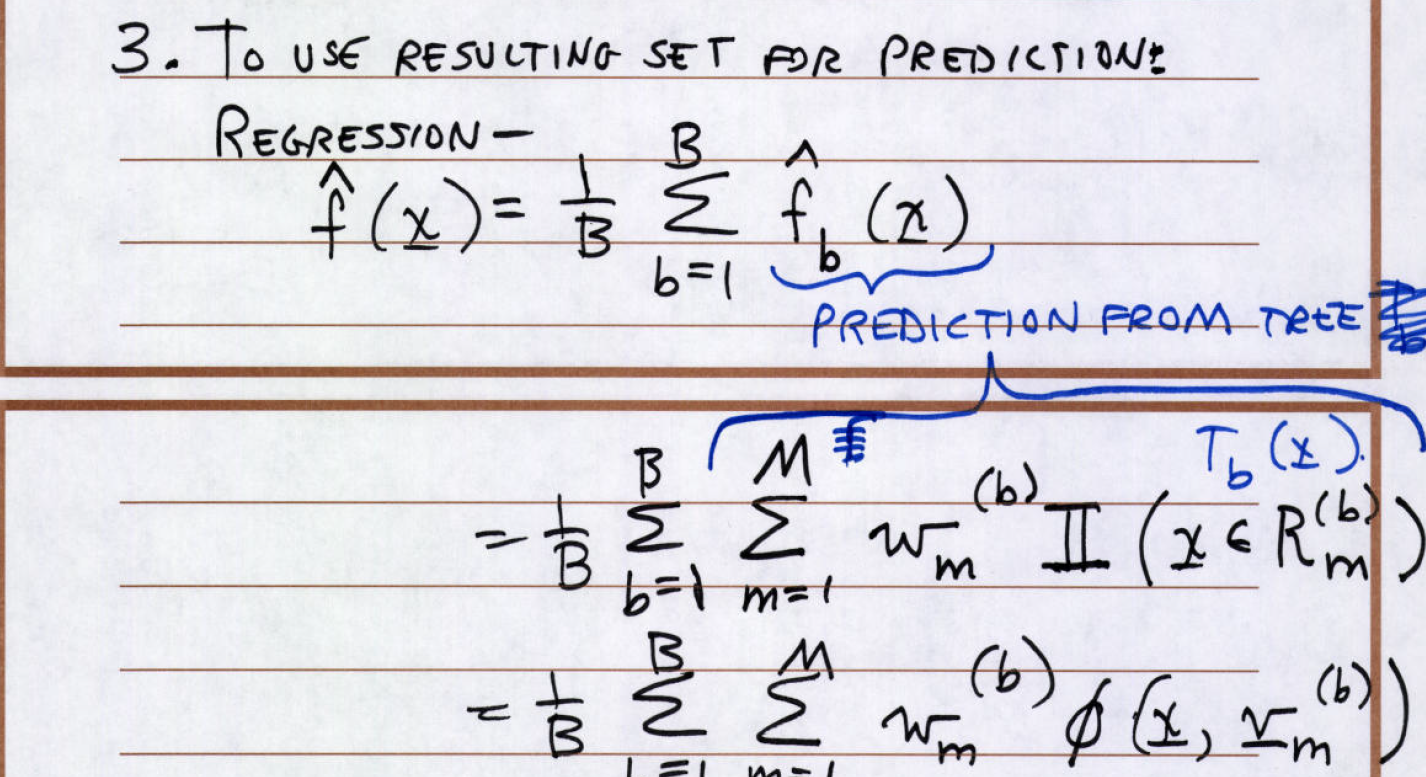 3. TO USE RESULTING SET FOR PREDICTION:
REGRESSION –
f̂̂(x̲) = 1/B ∑_{b=1}^{B} f̂_b(x̲)
PREDICTION FROM TREE
T_b(x̲).
= 1/B ∑_{b=1}^{B} ∑_{m=1}^{M} w_m^{(b)} 𝕀(x̲ ∈ R_m^{(b)})
= 1/B ∑_{b=1}^{B} ∑_{m=1}^{M} w_m^{(b)} ϕ(x̲, v̲_m^{(b)})